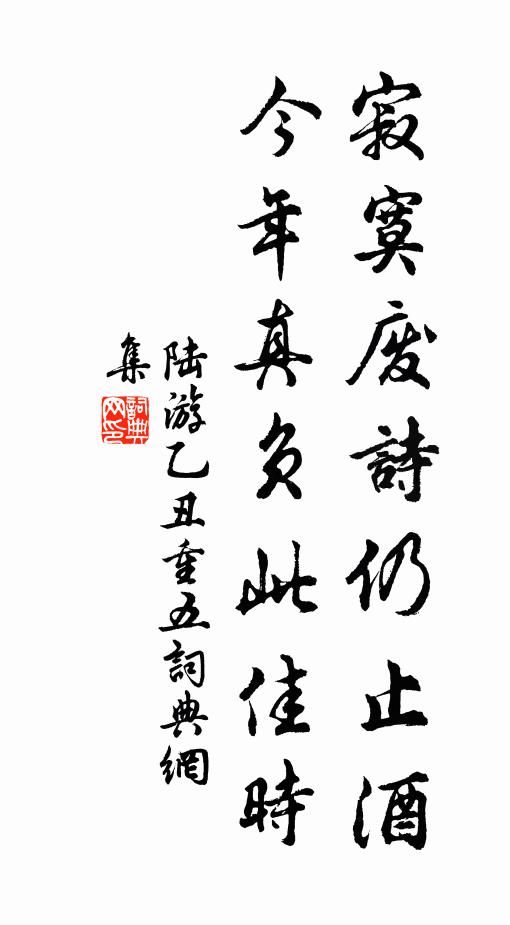 寂寞废詩仍止酒
今年真负此佳時
陆游乙丑重五詞典網
集
詞典网印